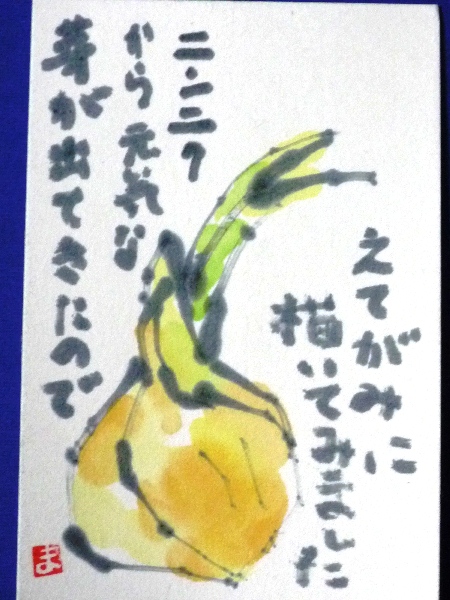 ニンニク
から元気な
芽が出てきたので
えてがみに
描いてみました
ま